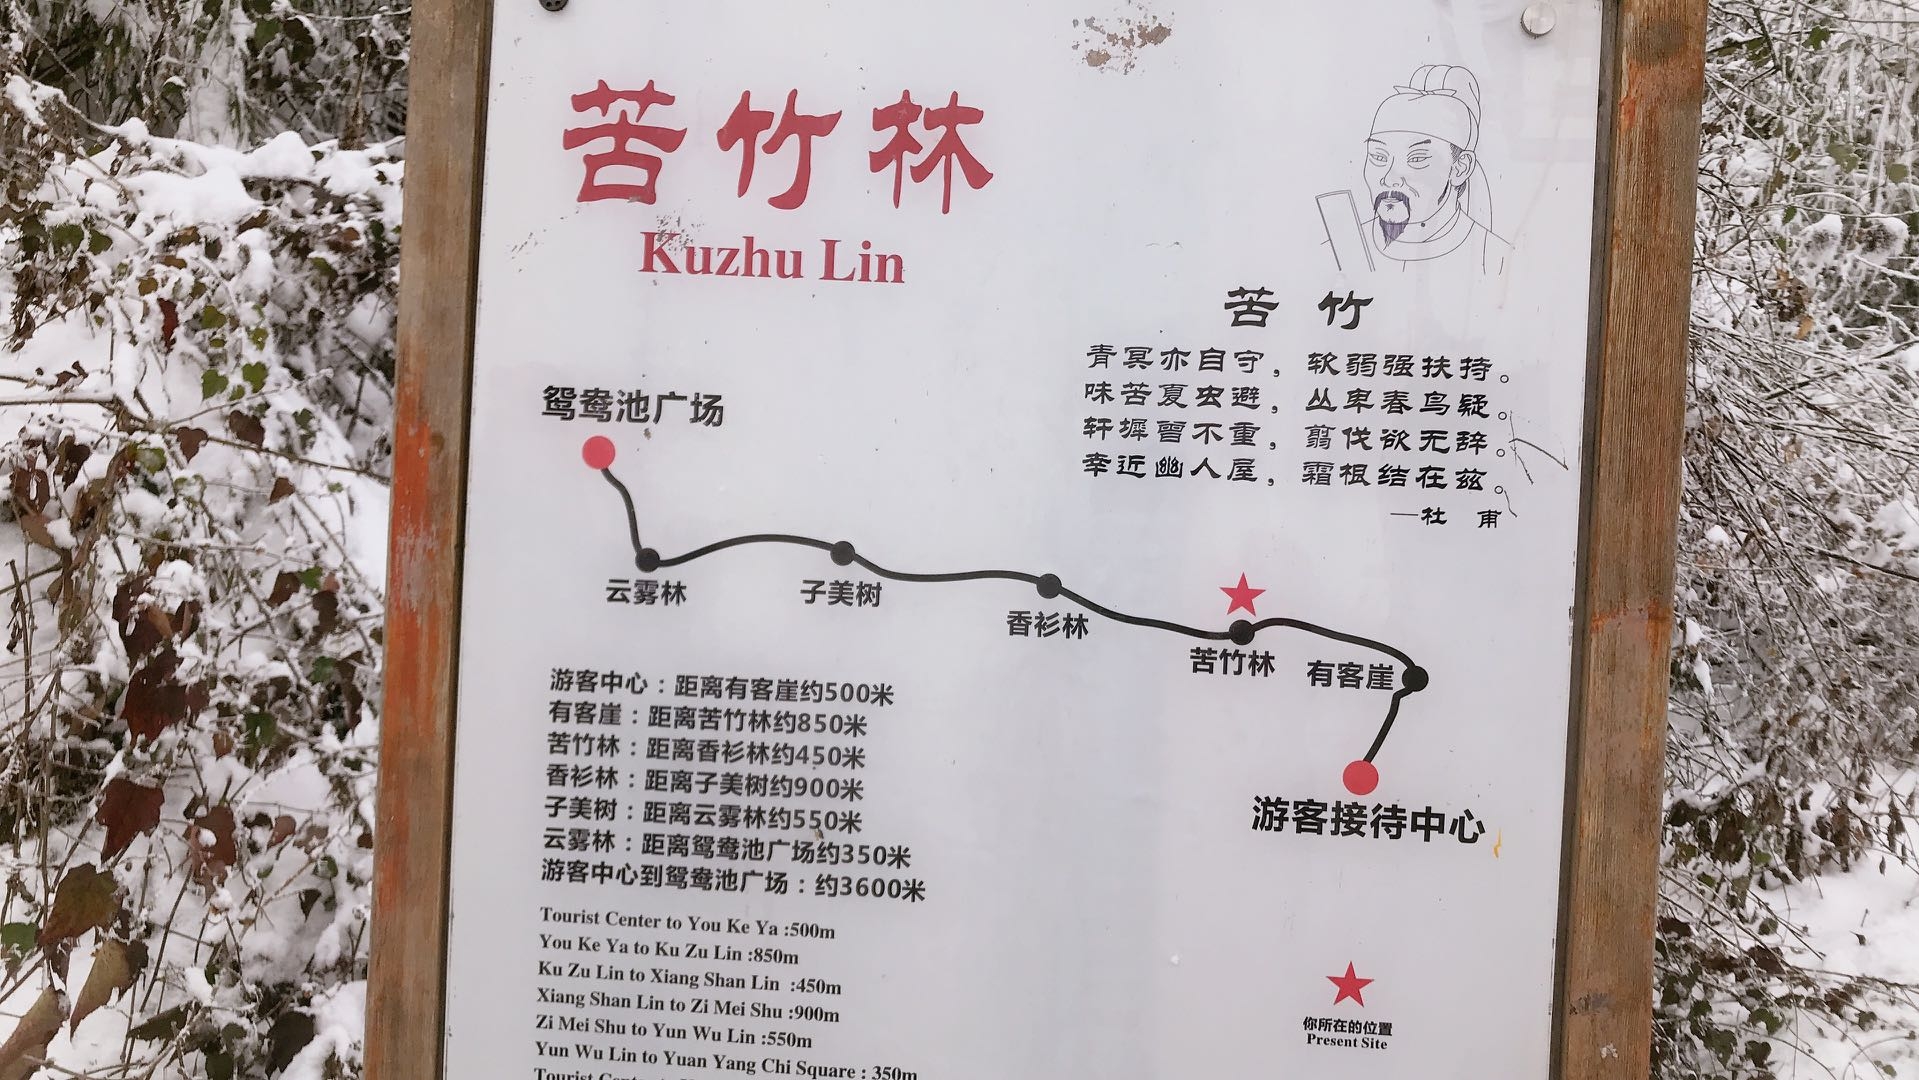 苦竹林
Kuzhu Lin
苦 竹
青冥亦自守，软弱强扶持。
味苦夏虫避，丛卑春鸟疑。
轩墀曾不重，翦伐欲无辞。
幸近幽人屋，霜根结在兹。
—杜 甫
鸳鸯池广场
云雾林
子美树
香衫林
苦竹林
有客崖
游客接待中心
游客中心：距离有客崖约500米
有客崖：距离苦竹林约850米
苦竹林：距离香衫林约450米
香衫林：距离子美树约900米
子美树：距离云雾林约550米
云雾林：距离鸳鸯池广场约350米
游客中心到鸳鸯池广场：约3600米
Tourist Center to You Ke Ya :500m
You Ke Ya to Ku Zu Lin :850m
Ku Zu Lin to Xiang Shan Lin :450m
Xiang Shan Lin to Zi Mei Shu :900m
Zi Mei Shu to Yun Wu Lin :550m
Yun Wu Lin to Yuan Yang Chi Square : 350m
你所在的位置
Present Site